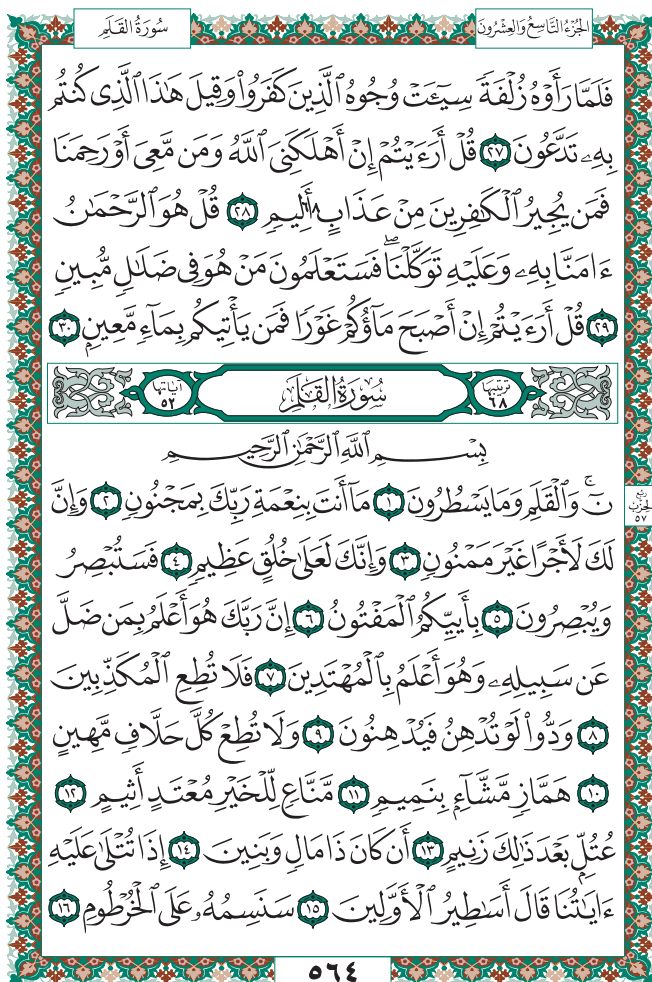 الجُزْءُ التَّاسِعُ وَالعِشْرُونَ
سُورَةُ القَلَمِ
فَلَمَّا رَأَوْهُ زُلْفَةً سِيٓـَٔتْ وُجُوهُ ٱلَّذِينَ كَفَرُوا۟ وَقِيلَ هَـٰذَا ٱلَّذِى كُنتُم
بِهِۦ تَدَّعُونَ ٢٧ قُلْ أَرَءَيْتُمْ إِنْ أَهْلَكَنِىَ ٱللَّهُ وَمَن مَّعِىَ أَوْ رَحِمَنَا
فَمَن يُجِيرُ ٱلْكَـٰفِرِينَ مِنْ عَذَابٍ أَلِيمٍ ٢٨ قُلْ هُوَ ٱلرَّحْمَـٰنُ
ءَامَنَّا بِهِۦ وَعَلَيْهِ تَوَكَّلْنَا ۖ فَسَتَعْلَمُونَ مَنْ هُوَ فِى ضَلَـٰلٍ مُّبِينٍ
٢٩ قُلْ أَرَءَيْتُمْ إِنْ أَصْبَحَ مَآؤُكُمْ غَوْرًا فَمَن يَأْتِيكُم بِمَآءٍ مَّعِينٍۭ ٣٠
تَرْتِيبُهَا ٦٨ سُورَةُ القَلَمِ آيَاتُهَا ٥٢
بِسْمِ ٱللَّهِ ٱلرَّحْمَـٰنِ ٱلرَّحِيمِ
نٓ ۚ وَٱلْقَلَمِ وَمَا يَسْطُرُونَ ١ مَآ أَنتَ بِنِعْمَةِ رَبِّكَ بِمَجْنُونٍ ٢ وَإِنَّ
لَكَ لَأَجْرًا غَيْرَ مَمْنُونٍ ٣ وَإِنَّكَ لَعَلَىٰ خُلُقٍ عَظِيمٍ ٤ فَسَتُبْصِرُ
وَيُبْصِرُونَ ٥ بِأَييِّكُمُ ٱلْمَفْتُونُ ٦ إِنَّ رَبَّكَ هُوَ أَعْلَمُ بِمَن ضَلَّ
عَن سَبِيلِهِۦ وَهُوَ أَعْلَمُ بِٱلْمُهْتَدِينَ ٧ فَلَا تُطِعِ ٱلْمُكَذِّبِينَ
٨ وَدُّوا۟ لَوْ تُدْهِنُ فَيُدْهِنُونَ ٩ وَلَا تُطِعْ كُلَّ حَلَّافٍ مَّهِينٍ
١٠ هَمَّازٍ مَّشَّآءٍۭ بِنَمِيمٍ ١١ مَّنَّاعٍ لِّلْخَيْرِ مُعْتَدٍ أَثِيمٍ ١٢
عُتُلٍّۭ بَعْدَ ذَٰلِكَ زَنِيمٍ ١٣ أَن كَانَ ذَا مَالٍ وَبَنِينَ ١٤ إِذَا تُتْلَىٰ عَلَيْهِ
ءَايَـٰتُنَا قَالَ أَسَـٰطِيرُ ٱلْأَوَّلِينَ ١٥ سَنَسِمُهُۥ عَلَى ٱلْخُرْطُومِ ١٦
رُبْع
الحِزْب
٥٧
٥٦٤